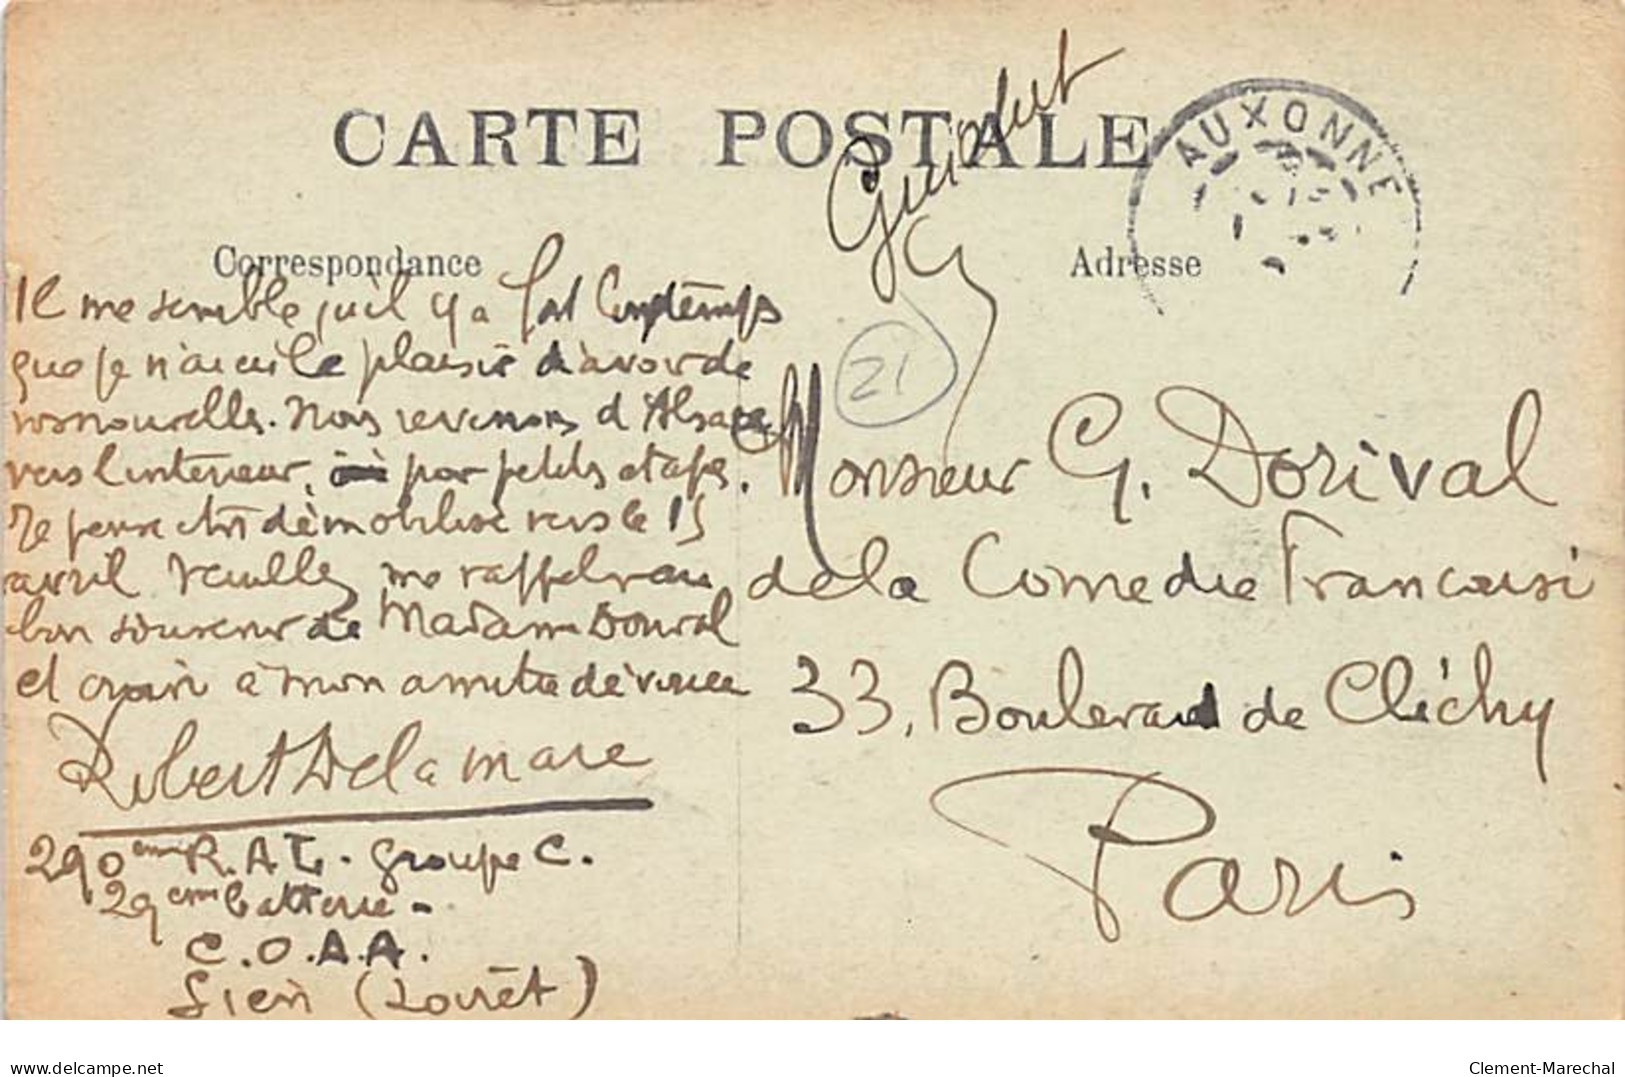 CARTE POSTALE
AUXONNE
Correspondance
Adresse
21
Il me semble qu'il y a fort longtemps
que je n'ai eu le plaisir d'avoir de
vos nouvelles. Nous revenons d'Alsace
vers l'intérieur, par petits etapes.
Je pense être démobilisé vers le 15
avril Veuillez me rappeler au
bon souvenir de Madame Dorival
et croire à mon amitié dévouée
Robert Delamare
290eme R.A.L. groupe C.
29eme batterie -
C.O.A.A.
Gien (Loiret)
Monsieur G. Dorival
de la Comedie Francaise
33, Boulevard de Clichy
Paris
delcampe.net
Clement-Marechal